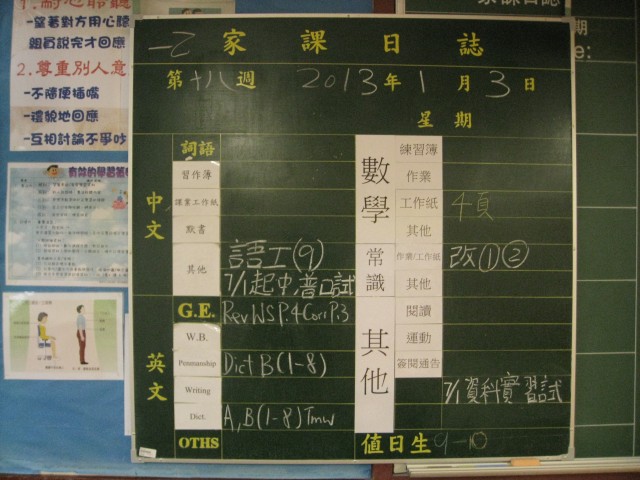 1.耐心聆聽
-望著對方用心聽
組員說完才回應
2.尊重別人意
-不隨便插嘴
-禮貌地回應
-互相討論不爭吵
有效的學習策
一乙 家課日誌
第十八週 2013年1月3日
星期
中文
詞語
習作簿
課業工作紙
默書
其他 語工(9)
7/1起中.普口試
英文
G.E. Rev WS P.4 Corr P.3
W.B.
Penmanship Dict B(1-8)
Writing
Dict. A,B(1-8) Tmw
OTHS
數學
練習簿
作業
工作紙 4頁
其他
常識
作業/工作紙 改①②
其他
其他
閱讀
運動
簽閱通告
7/1資料實習試
值日生 9-10
家課日誌
期
e: